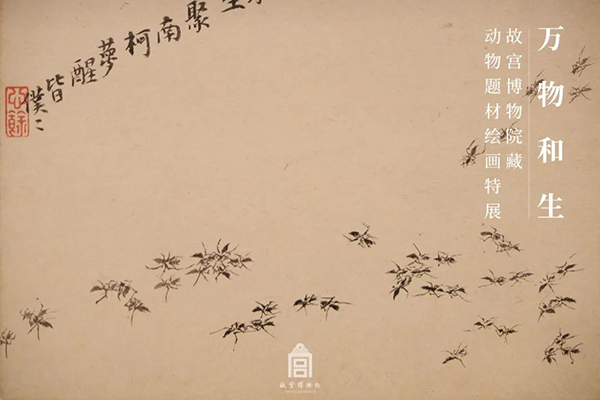 万物和生
故宫博物院藏
动物题材绘画特展
聚南柯夢醒
皆僕〻
心餘
故宫博物院